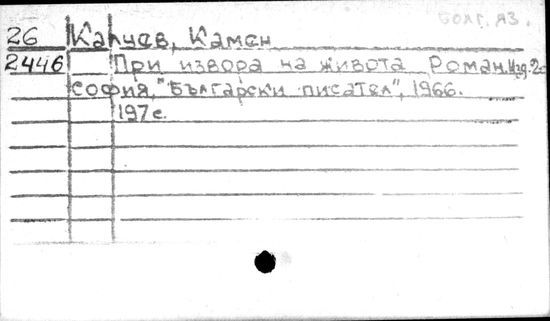 болг. яз.
26 Калчев, Камен
2446 При извора на живота Роман. Изд. 2-
София, "Български писател", 1966.
197 с.